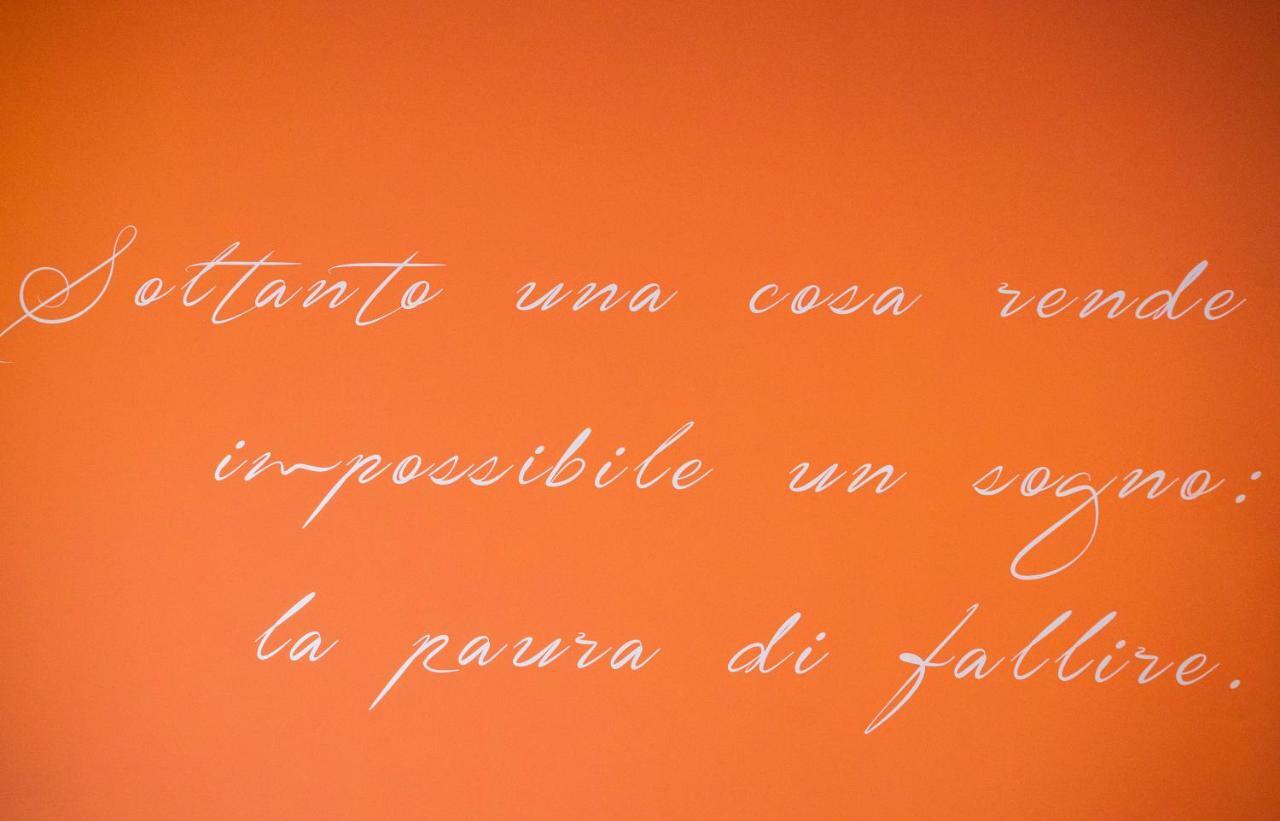 Sottanto una cosa rende
impossibile un sogno:
la paura di fallire.